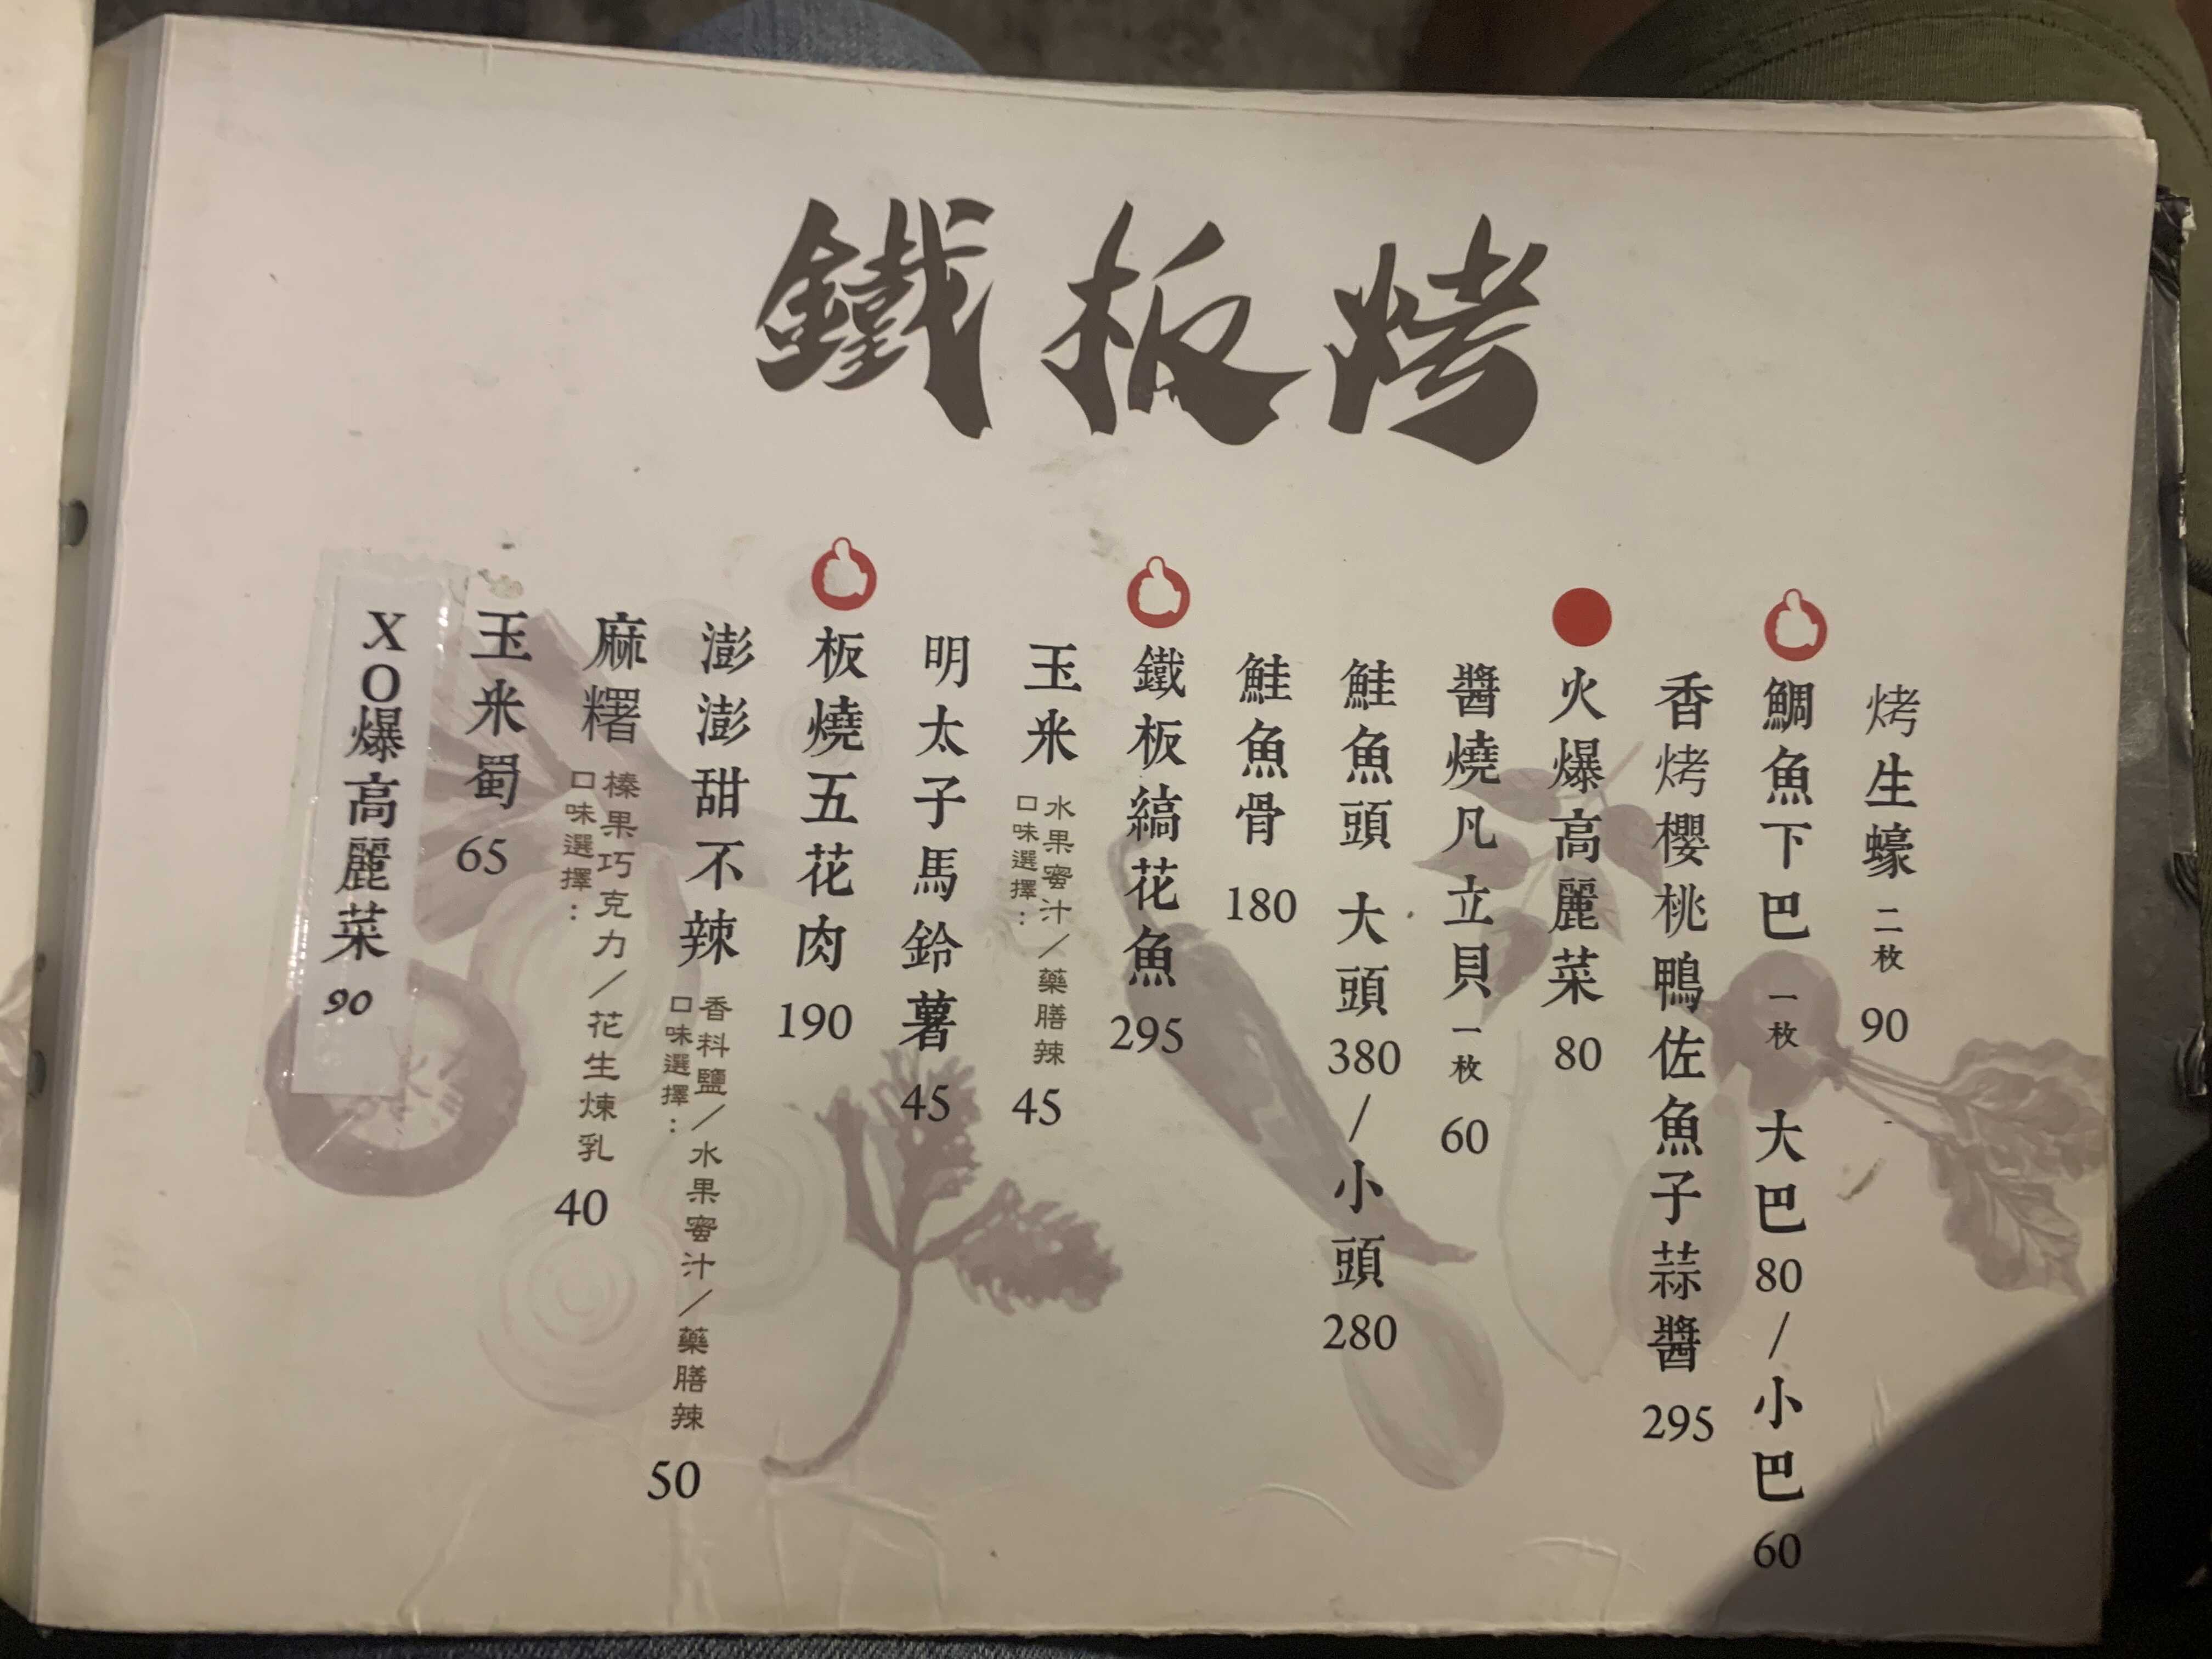 鐵板烤
烤生蠔 二枚 90
鯛魚下巴 一枚 大巴 80/小巴 60
香烤櫻桃鴨佐魚子蒜醬 295
火爆高麗菜 80
醬燒凡立貝 一枚 60
鮭魚頭 大頭 380/小頭 280
鮭魚骨 180
鐵板縞花魚 295
玉米 口味選擇：水果蜜汁/藥膳辣 45
明太子馬鈴薯 45
板燒五花肉 190
澎澎甜不辣 口味選擇：香料鹽/水果蜜汁/藥膳辣 50
麻糬 口味選擇：榛果巧克力/花生煉乳 40
玉米蜀 65
XO爆高麗菜 90